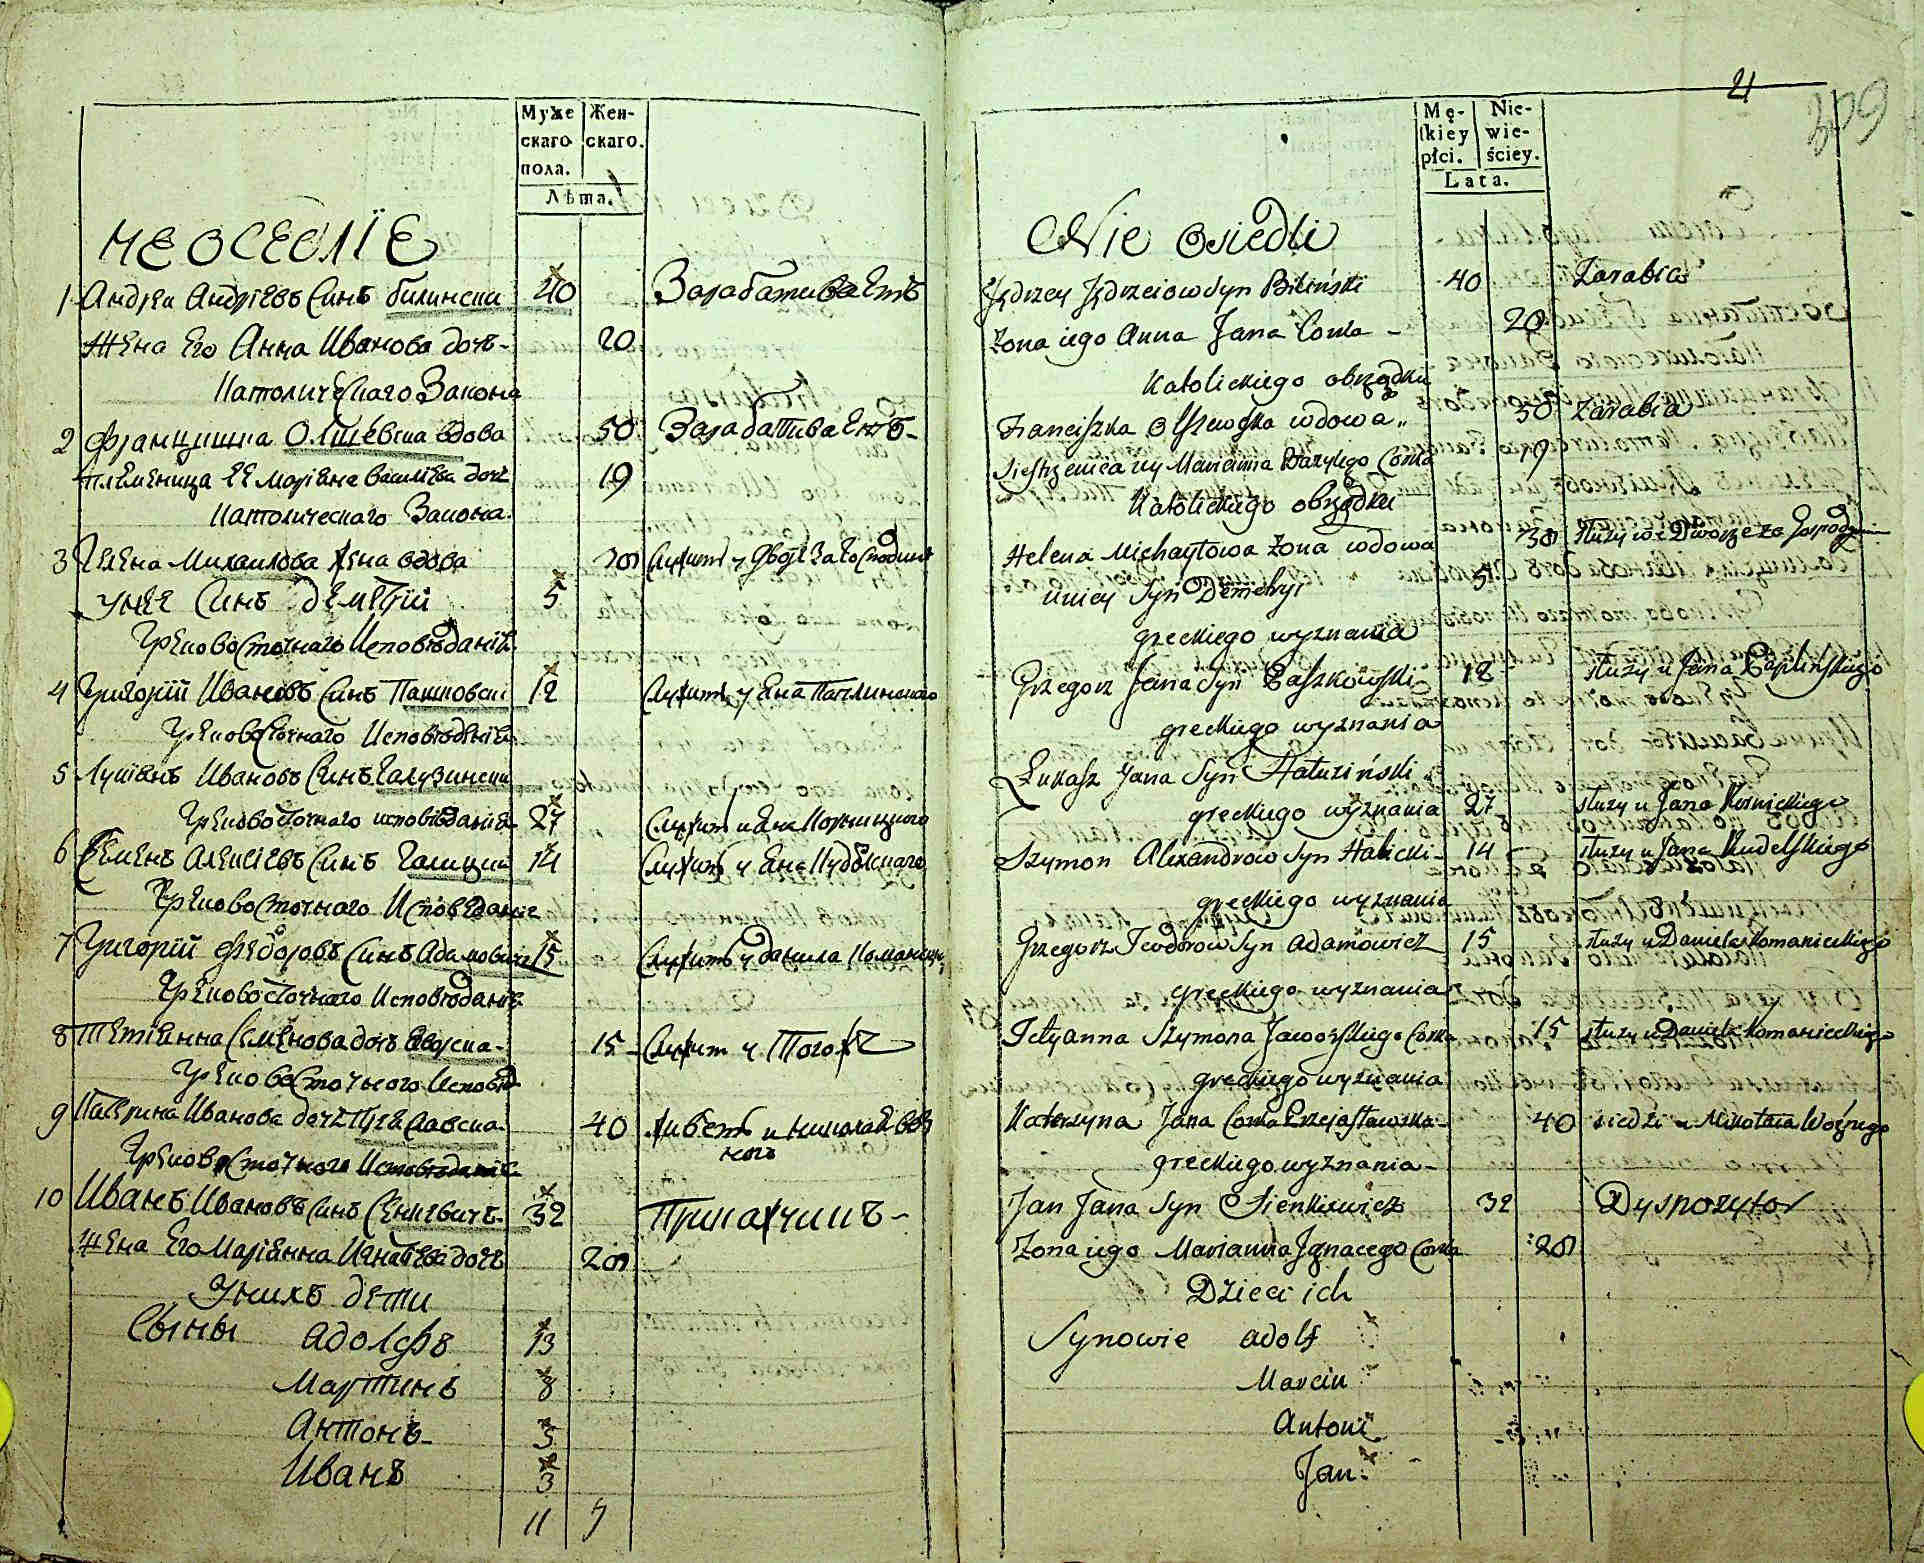 Муже скаго пола.
Жен- скаго.
Лѣта.
НЕОСЕОЛІЕ
1 Андреи Андріевъ Синъ билински 40 Заработиваетъ
Жена Его Анна Иванова дочъ- 20
Католическаго Закона
2 францишка Олшевска вдова 50 Заработиваетъ-
племеница ЕЕ Маріяна василіева дочъ 19
Католическаго Закона.
3 Гелена Михаилова жена вдова 30 Служитъ у дворе За Господиню
унее Синъ деметрій 5
Грековосточнаго Исповѣданія
4 Григорій Ивановъ Синъ Пашковски 12 Служитъ у Яна Паплинского
Грековосточнаго Исповѣданія
5 Лукіянъ Ивановъ Синъ Галузински
Грековосточнаго исповѣданія 27 Служитъ и Яна Корницкого
6 Семенъ Алексіевъ Синъ Галицки 14 Служитъ у Яна Кудельского
Грековосточнаго Исповеданіе
7 Григорій федоровъ Синъ Адамовичъ 15 Служитъ у данила Команицк
Грековосточнаго Исповѣданія
8 Тетіянна Семенова дочъ Яворска- 15- Служит у Того же
Грековосточного Исповѣд
9 Катерина Иванова дочъ Пржеславска 40 живетъ и николая воз
ного
Грековосточного Исповѣданіе
10 Иванъ Ивановъ Синъ Сенкевичъ- 32 Прикащикъ-
Жена Его Маріянна Игнатіева дочъ 28
Унихъ дети
Сыны Адольфъ 13
Мартинъ 8
Антонъ- 5
Иванъ 3
11 9
21
Mę- skiey płci.
Nie- wie- ściey.
Lata.
Nie Osiedli
Jędrzey Jędrzeiow Syn Biliński 40 Zarabia
Zona iego Anna Jana Corka - 20
Katolickiego obrządku
Franciszka Olszewska wdowa „ 50 Zarabia
Siestrzenica iey Marianna Bazylego Corka 19
Katolickiego obrządku
Helena Michayłowa Zona wdowa 30 służy we Dworze za Gospodynię
uniey Syn Demetryi 5
greckiego wyznania
Grzegorz Jana Syn Paszkowski 12 służy u Jana Paplińskiego
greckiego wyznania
Łukasz Jana Syn Hałuziński
greckiego wyznania 27 służy u Jana Kornickiego
Szymon Alexandrow Syn Halicki- 14 służy u Jana Kudelskiego
greckiego wyznania
Grzegorz Teodorow Syn Adamowicz 15 służy u Daniela Komanieckiego
greckiego wyznania
Tetyanna Szymona Jaworskiego Corka 15 służy u Daniela Komanieckiego
greckiego wyznania
Katerzyna Jana Corka Przesławska- 40 siedzi u Mikołaia Woźnego
greckiego wyznania-
Jan Jana Syn Sienkiewicz 32 Dyspozytor
Zona iego Marianna Ignacego Corka 28
Dzieci ich
Synowie Adolf
Marcin
Antoni
Jan.